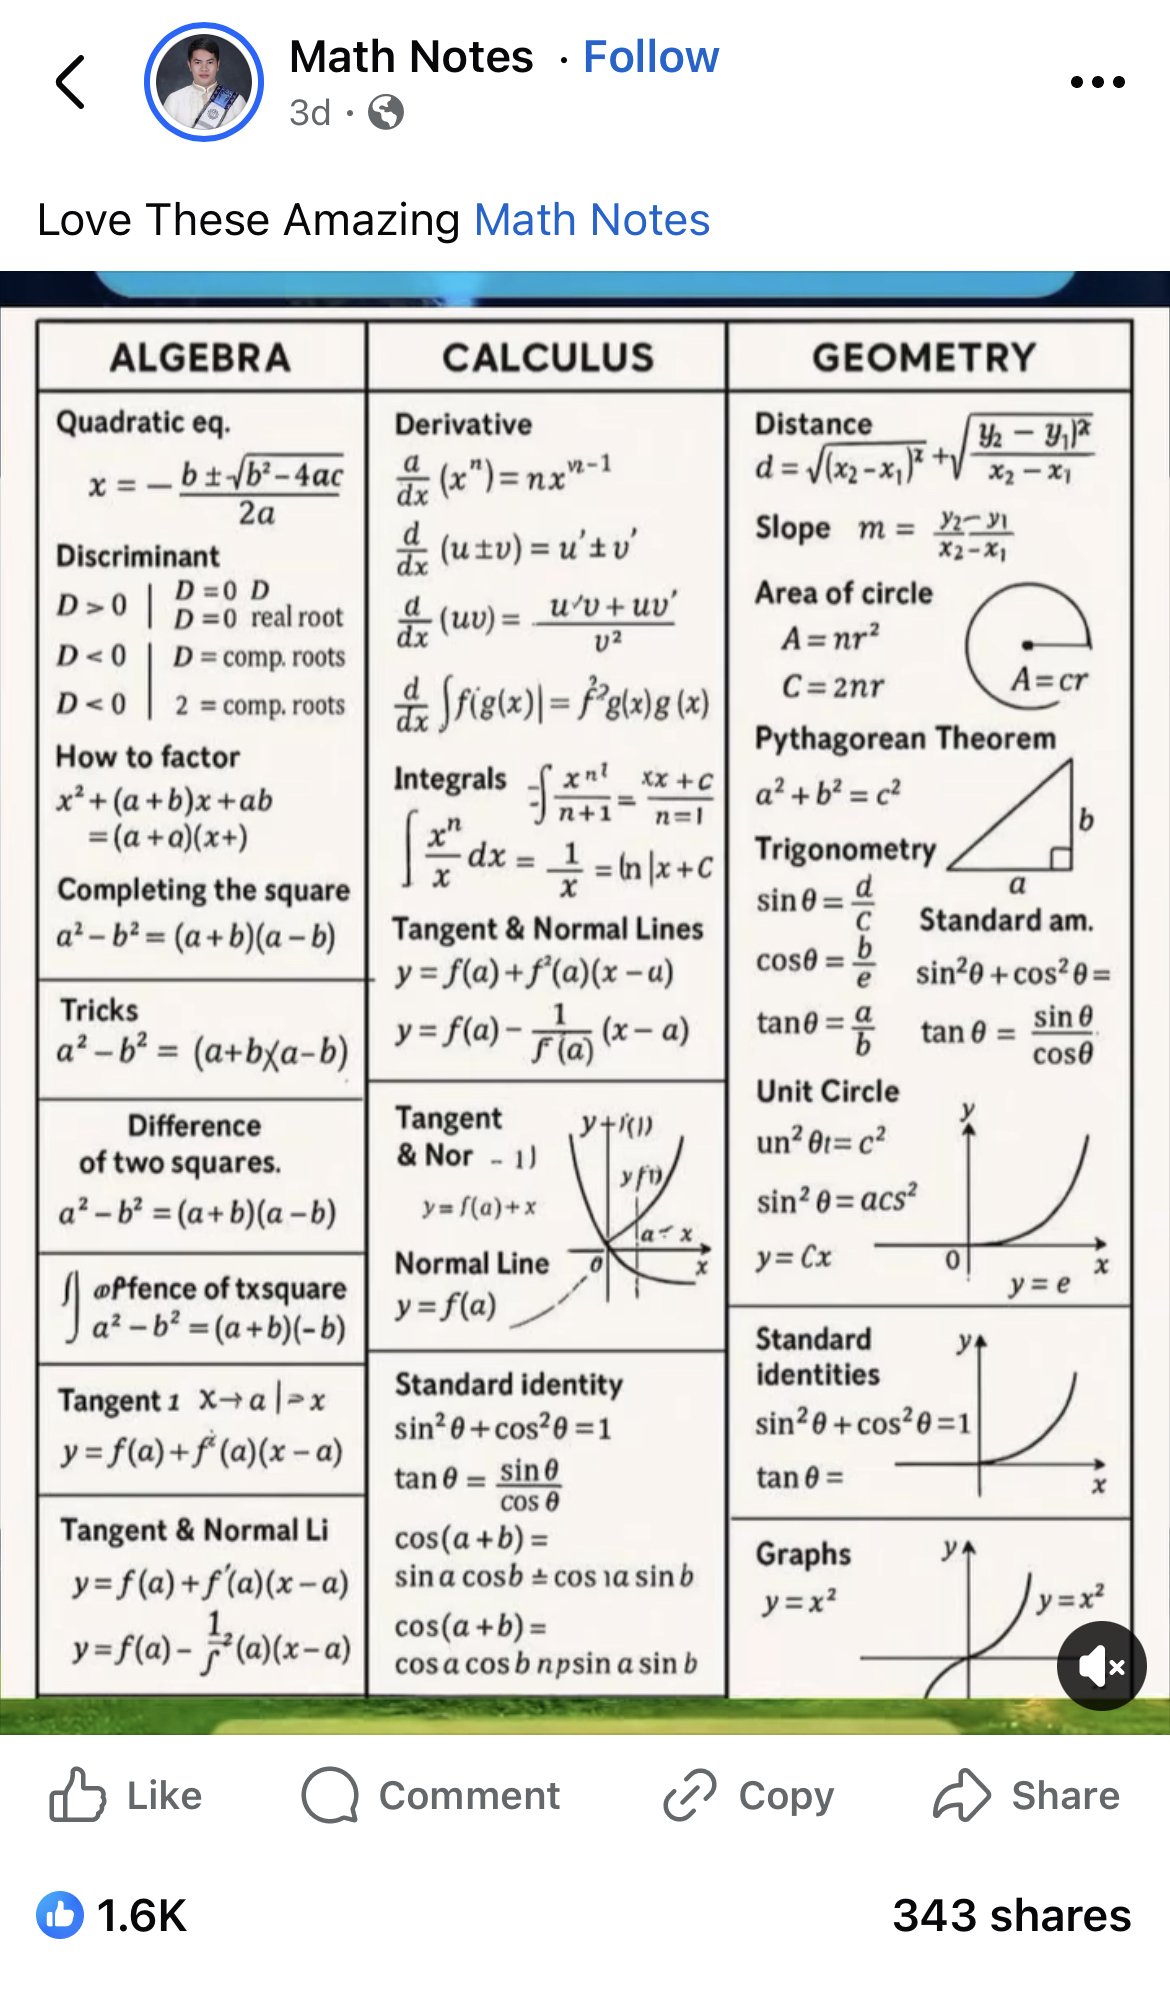 Math Notes · Follow
3d ·
Love These Amazing Math Notes
ALGEBRA
Quadratic eq.
x = − b ± √b² − 4ac / 2a
Discriminant
D > 0 | D = 0 D
D = 0 real root
D < 0 | D = comp. roots
D < 0 | 2 = comp. roots
How to factor
x² + (a + b)x + ab
= (a + a)(x+)
Completing the square
a² − b² = (a + b)(a − b)
Tricks
a² − b² = (a+b)(a−b)
Difference
of two squares.
a² − b² = (a + b)(a − b)
of txsquare
a² − b² = (a + b)(−b)
Tangent 1 x → a | > x
y = f(a) + f²(a)(x − a)
Tangent & Normal Li
y = f(a) + f′(a)(x − a)
y = f(a) − 1/f² (a)(x − a)
CALCULUS
Derivative
a/dx (xⁿ) = nxⁿ⁻¹
d/dx (u ± v) = u′ ± v′
d/dx (uv) = u′v + uv′ / v²
d/dx ∫f(g(x)| = f²g(x)g (x)
Integrals
n+1 = xx + c / n=1
∫ xⁿ/x dx = 1/x = ln |x + C
Tangent & Normal Lines
y = f(a) + f²(a)(x − a)
y = f(a) − 1/f (a) (x − a)
Tangent
& Nor - 1)
y = f(a) + x
Normal Line
y = f(a)
0
x
Standard identity
sin² θ + cos² θ = 1
tan θ = sin θ / cos θ
cos(a + b) =
sin a cos b ± cos ıa sin b
cos(a + b) =
cos a cos b npsin a sin b
GEOMETRY
Distance
d = √(x₂ − x₁)² + √ y₂ − y₁)² / x₂ − x₁
Slope m = y₂ − y₁ / x₂ − x₁
Area of circle
A = nr²
C = 2nr
A = cr
Pythagorean Theorem
a² + b² = c²
b
a
Trigonometry
sin θ = d/c
cos θ = b/e
tan θ = a/b
Standard am.
sin² θ + cos² θ =
tan θ = sin θ / cos θ
Unit Circle
un² θt = c²
sin² θ = acs²
y = Cx
y
0
x
y = e
Standard
identities
sin² θ + cos² θ = 1
tan θ =
y
x
Graphs
y = x²
y
y = x²
Like
Comment
Copy
Share
1.6K
343 shares